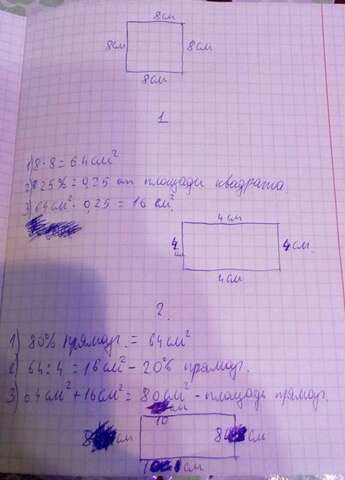 8см
8см 8см
8см
1
1) 8·8=64см²
2) 25%=0,25 от площади квадрата.
3) 64см²·0,25=16см².
4см
4см 4см.
4см
2.
1) 80% прямоуг. = 64см²
2) 64:4=16см² - 20% прямоуг.
3) 64см²+16см²=80см² - площадь прямоуг.
см
10
8 см 8 см
см